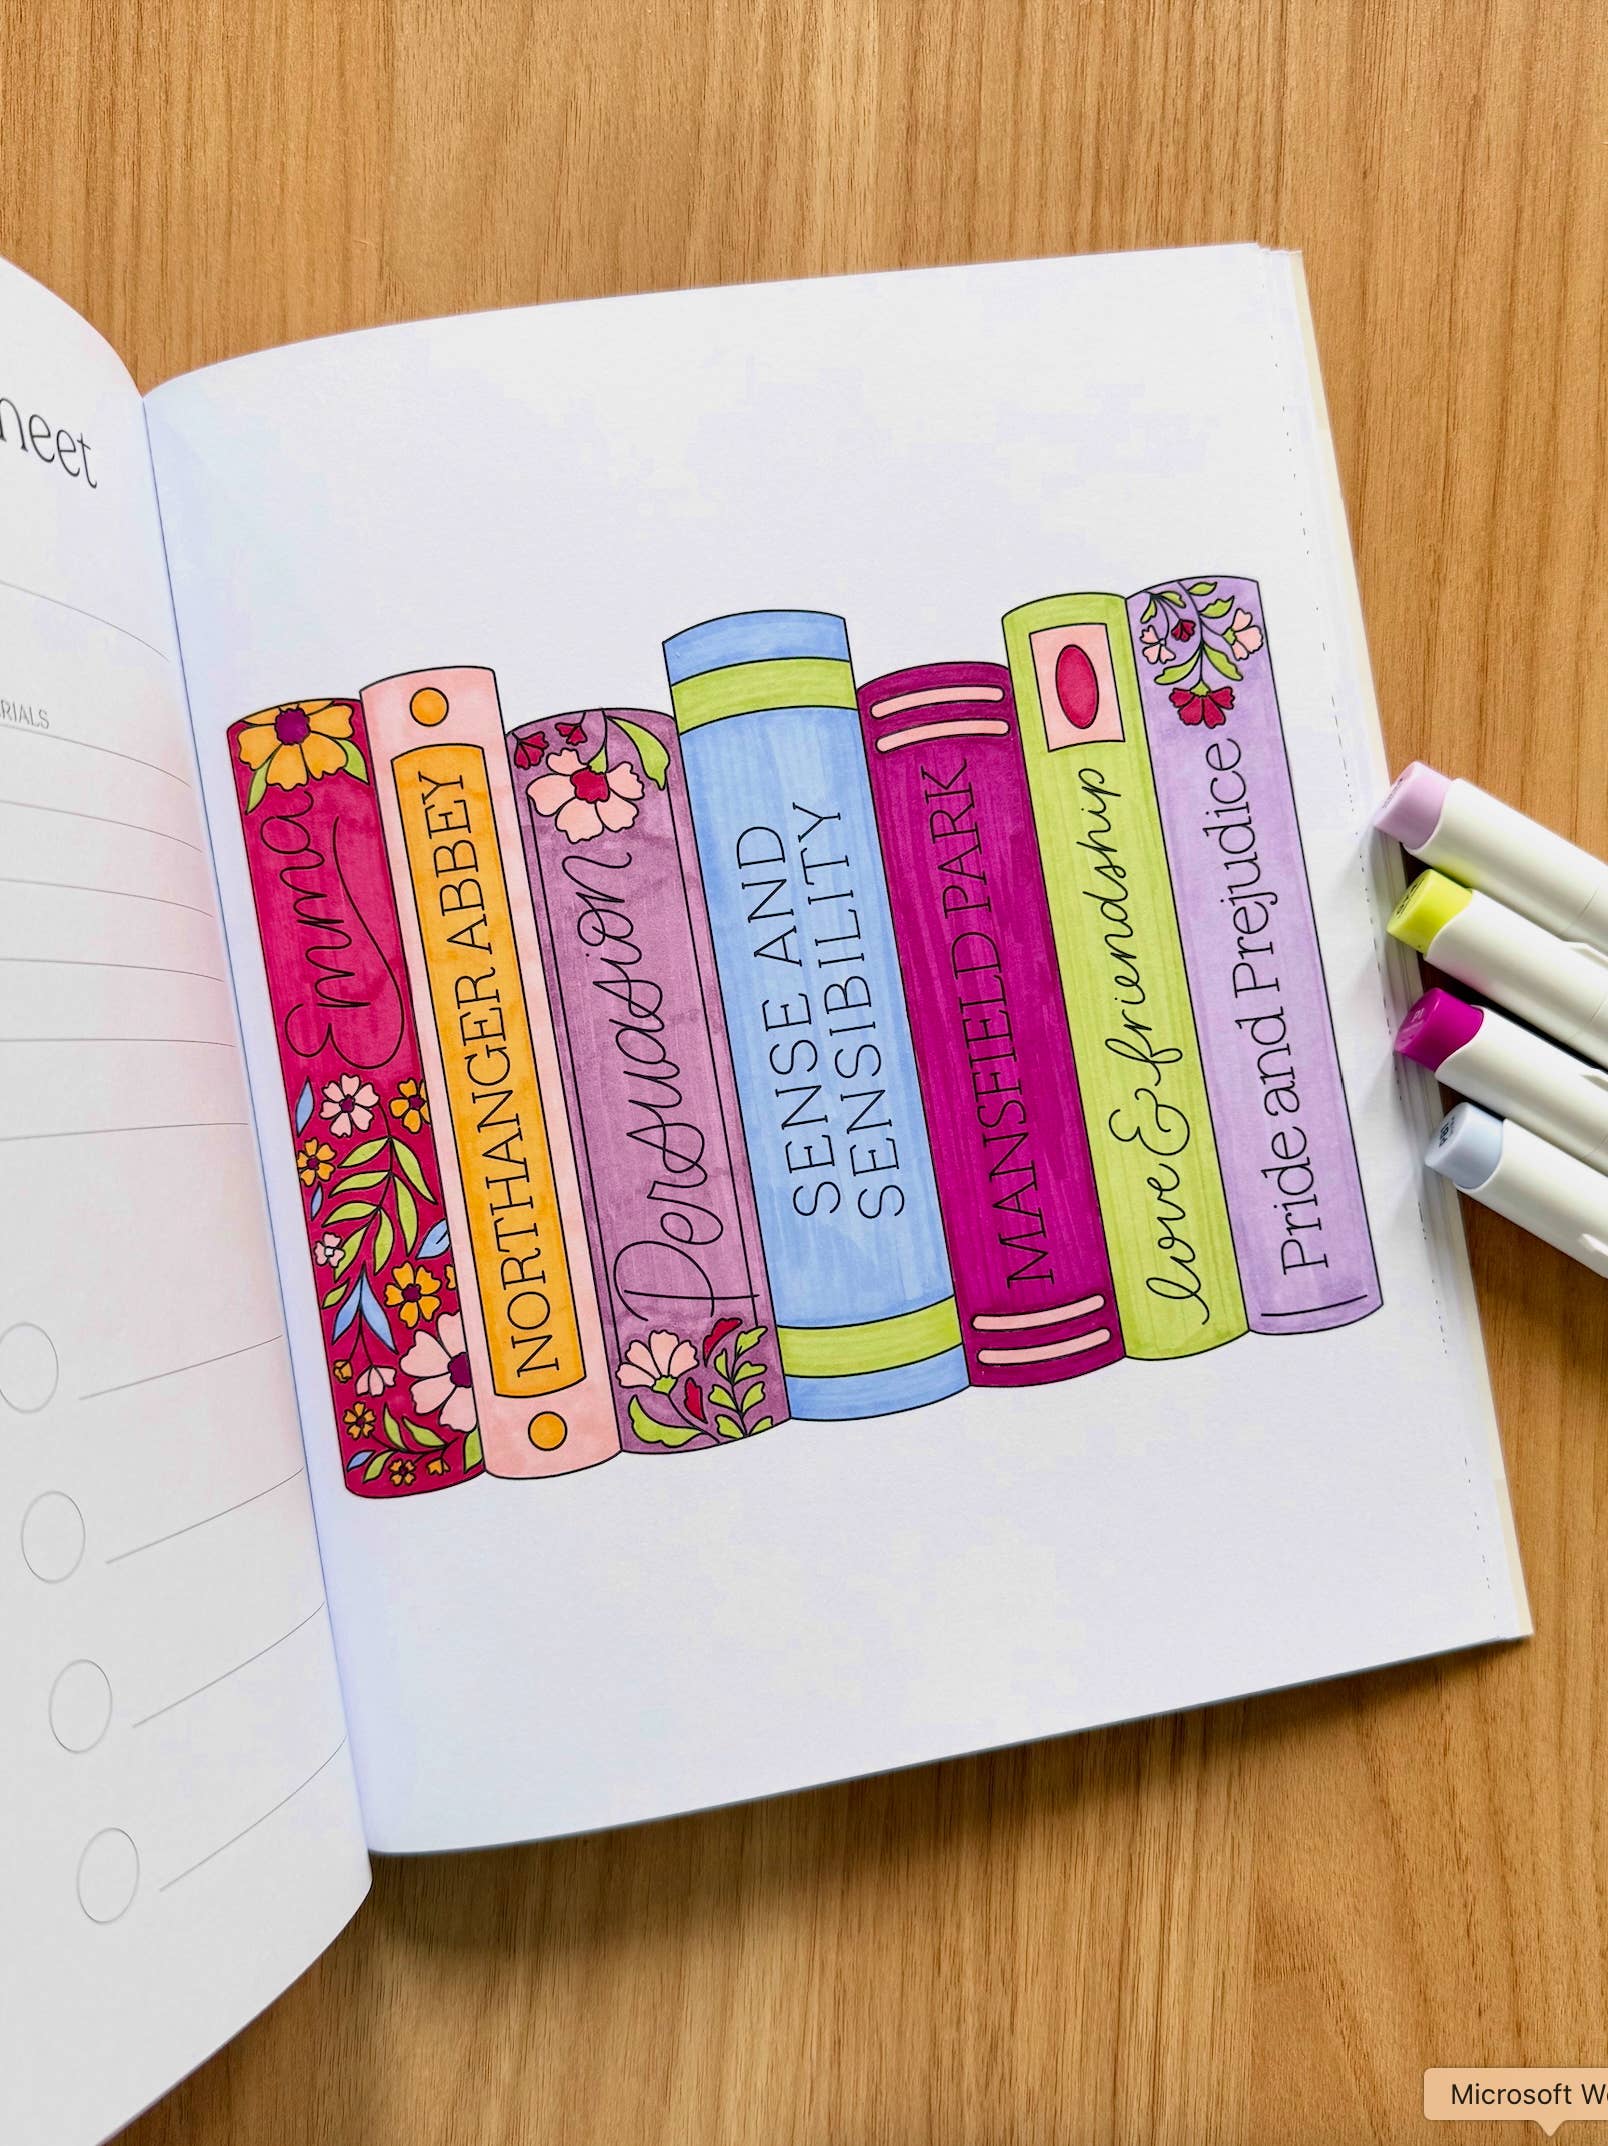 neet
RIALS
Emma
NORTHANGER ABBEY
Persuasion
SENSE AND
SENSIBILITY
MANSFIELD PARK
love & friendship
Pride and Prejudice
Microsoft W